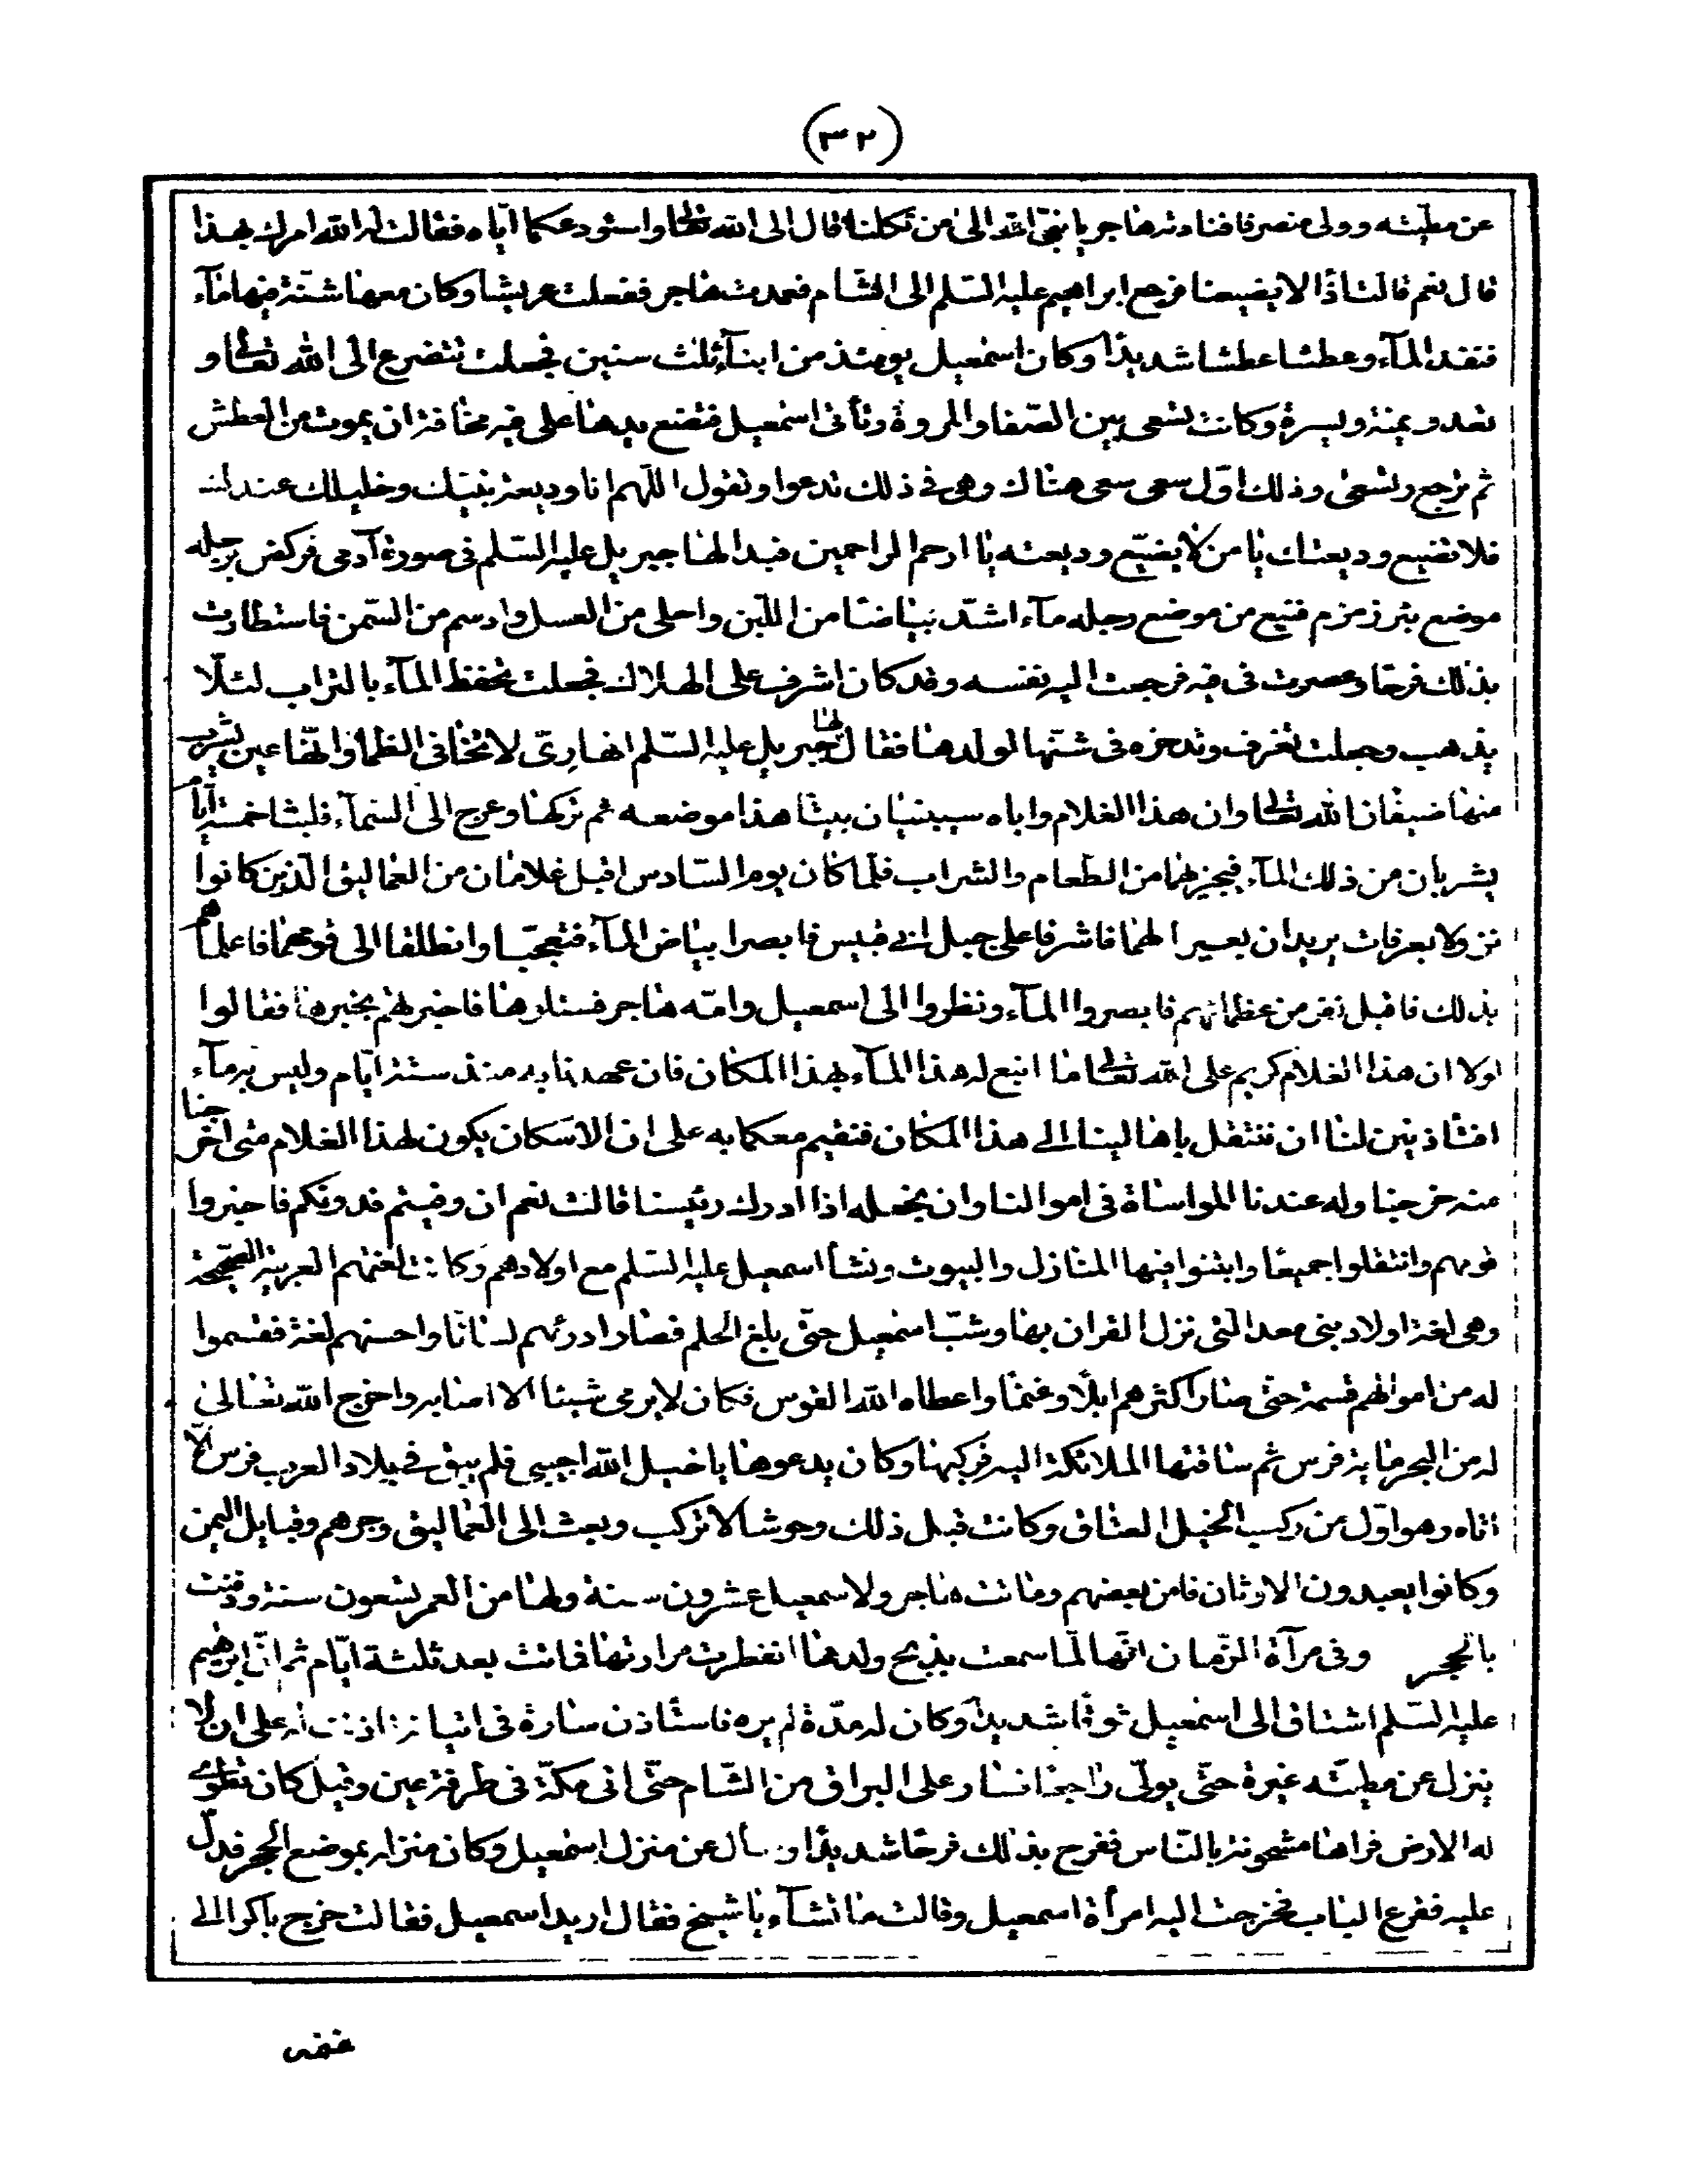 (٣٢)
عن مطيّته وولى منصرفا فنادته هاجر يا نبىّ الله الى من تكلنا قال الى الله تعالى واستودعكما اياه فقالت له الله امرك بهذا
قال نعم قالت اذًا لا يضيعنا فرجع ابراهيم عليه السّلم الى الشام فعمدت هاجر فعملت عريشا وكان معها شنّة فيها مآء
فنفد المآء وعطشا عطشا شديدًا وكان اسمعيل يومئذ من ابنآء ثلث سنين فجعلت تتضرع الى الله تعالى و
تعدو يمنة ويسرة وكانت تسعى بين الصّفا والمروة وتأتى اسمعيل فتضع يدها على فيه مخافة ان يموت من العطش
ثم ترجع وتسعى وذلك اوّل سعى سعى هناك وهى فى ذلك تدعوا وتقول اللّهم انا وديعة نبيّك وخليلك عندك
فلا تضيع وديعتك يا من لا يضيّع وديعته يا ارحم الراحمين فبدا لها جبريل عليه السّلم فى صورة آدمى فركض برجله
موضع بئر زمزم فنبع من موضع رجله مآء اشدّ بياضا من اللّبن واحلى من العسل وادسم من السّمن فاستطارت
بذلك فرحا وعصرت فى فيه فرجعت اليه نفسه وقد كان اشرف على الهلاك فجعلت تحفظ المآء بالتراب لئلّا
يذهب وجعلت تغرف وتدخره فى شنّتها لولدها فقال لها جبريل عليه السّلم انها رِىّ لا تخافى الظمأ وانّها عين يشرب
منها ضيفان الله تعالى وان هذا الغلام واباه سيبنيان بيتا هذا موضعه ثم تركها وعرج الى السمآء فلبثا خمسة ايام
يشربان من ذلك المآء فيجزيهما من الطّعام والشراب فلمّا كان يوم السّادس اقبل غلامان من العماليق الذين كانوا
نزولا بعرفات يريدان بعيرا لهما فاشرفا على جبل ابى قبيس فابصرا بياض المآء فتعجّبا وانطلقا الى قومهما فاعلماهم
بذلك فاقبل نفر من عظمائهم فابصروا المآء ونظروا الى اسمعيل وامّه هاجر فسئلوها فاخبرتهم بخبرها فقالوا
لولا ان هذا الغلام كريم على الله تعالى ما انبع له هذا المآء بهذا المكان فان عهدنا به منذ ستة ايّام وليس به مآء
افتأذنين لنا ان ننتقل باهالينا الى هذا المكان فنقيم معكما به على ان الاسكان يكون لهذا الغلام متى اخرجنا
منه خرجنا وله عندنا المواساة فى اموالنا وان نجعله اذا ادرك رئيسنا قالت نعم ان وفيتم فدونكم فاخبروا
قومهم وانتقلوا جميعا وابتنوا فيها المنازل والبيوت ونشأ اسمعيل عليه السّلم مع اولادهم وكانت لغتهم العربية الصّحيحة
وهى لغة اولاد بنى معد التى نزل القران بها وشبّ اسمعيل حتّى بلغ الحلم فصار ادربهم لسانا واحسنهم لغة فقسموا
له من اموالهم قسمة حتى صار اكثرهم ابلًا وغنمًا واعطاه الله القوس فكان لا يرمى شيئا الا اصابه واخرج الله تعالى
له من البحر مأية فرس ثم ساقتها الملائكة اليه فركبها وكان يدعوها يا خيل الله اجيبى فلم يبق فى بلاد العرب فرس الّا
اتاه وهو اوّل من ركب الخيل العتاق وكانت قبل ذلك وحوشا لا تركب وبعث الى العماليق وجرهم وقبايل اليمن
وكانوا يعبدون الاوثان فامن بعضهم وماتت هاجر ولاسمعيل عشرون سنة ولها من العمر تسعون سنة ودفنت
بالحجر وفى مرآة الزّمان انّها لمّا سمعت بذبح ولدها انفطرت مرارتها فماتت بعد ثلثة ايّام ثم انّ ابرهيم
عليه السّلم اشتاق الى اسمعيل شوقًا شديدًا وكان له مدّة لم يره فاستأذن سارة فى اتيانه فاذنت له على ان لا
ينزل عن مطيّته غيرة حتّى يولّى راجعا فسار على البراق من الشّام حتّى اتى مكّة فى طرفة عين وقيل كان تطوى
له الارض فراها مشحونة بالنّاس ففرح بذلك فرحًا شديدًا وسأل عن منزل اسمعيل وكان منزله بموضع الحجر فدلّ
عليه فقرع الباب فخرجت اليه امرأة اسمعيل وقالت ما تشآء يا شيخ فقال اريد اسمعيل فقالت خرج باكرا الى